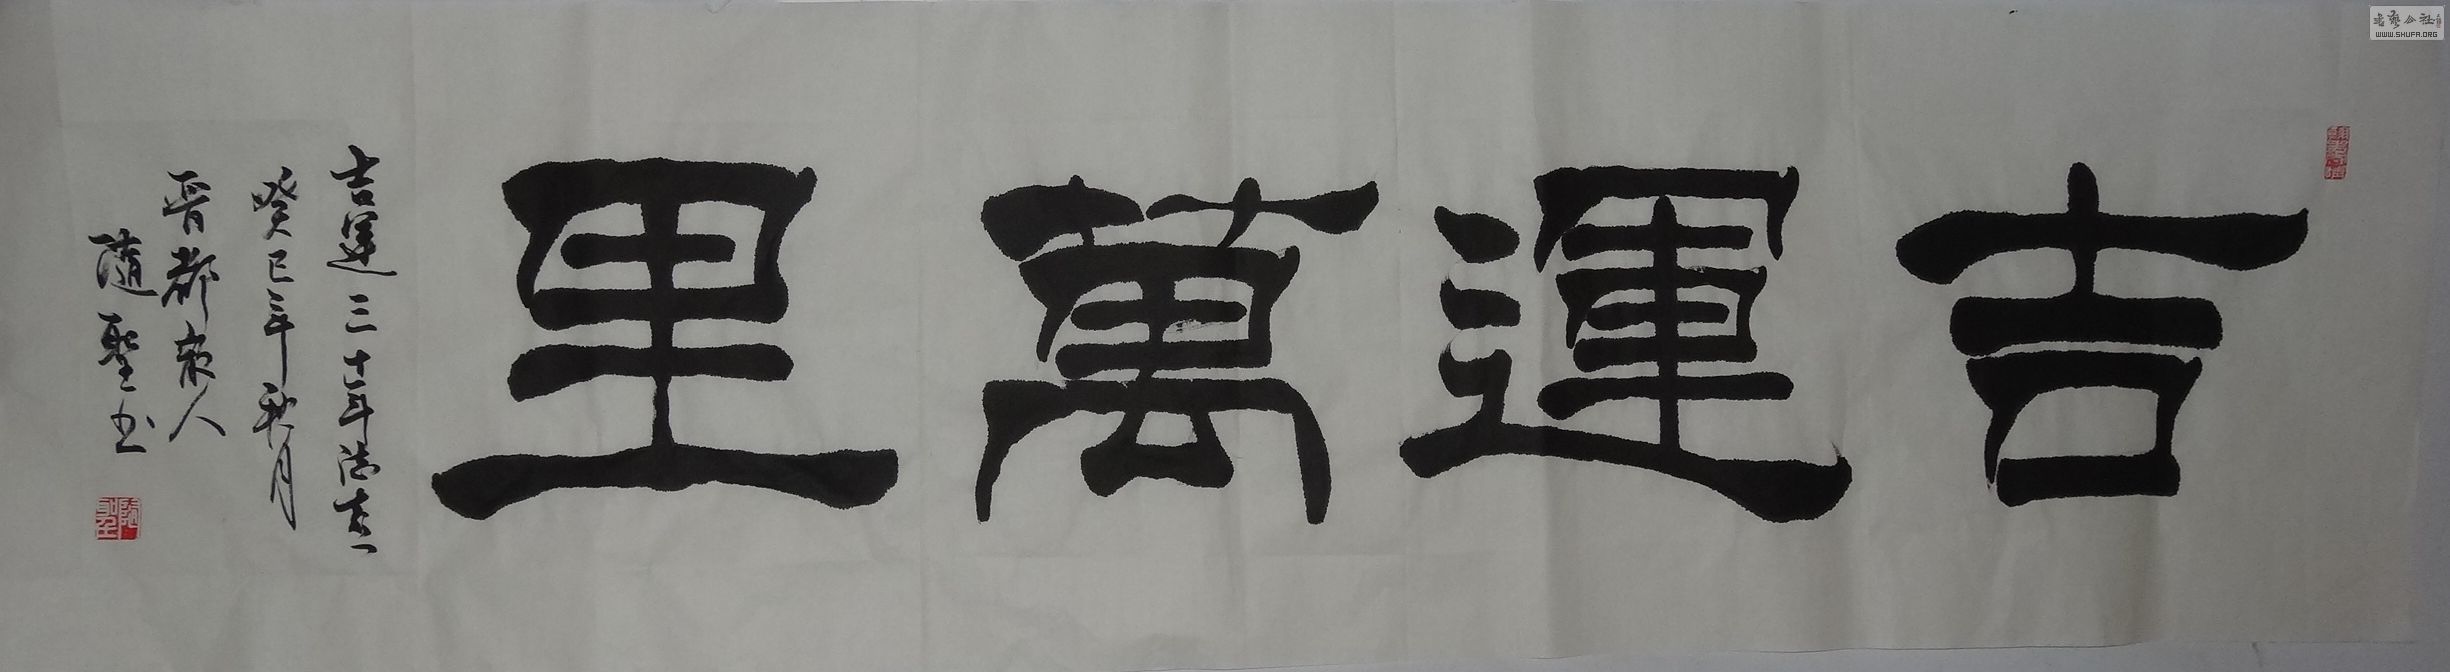 吉運萬里
吉運三十年誌志
癸巳年秋月
晉都家人
隨聖书
隨聖
書藝公社
WWW.SHUFA.ORG